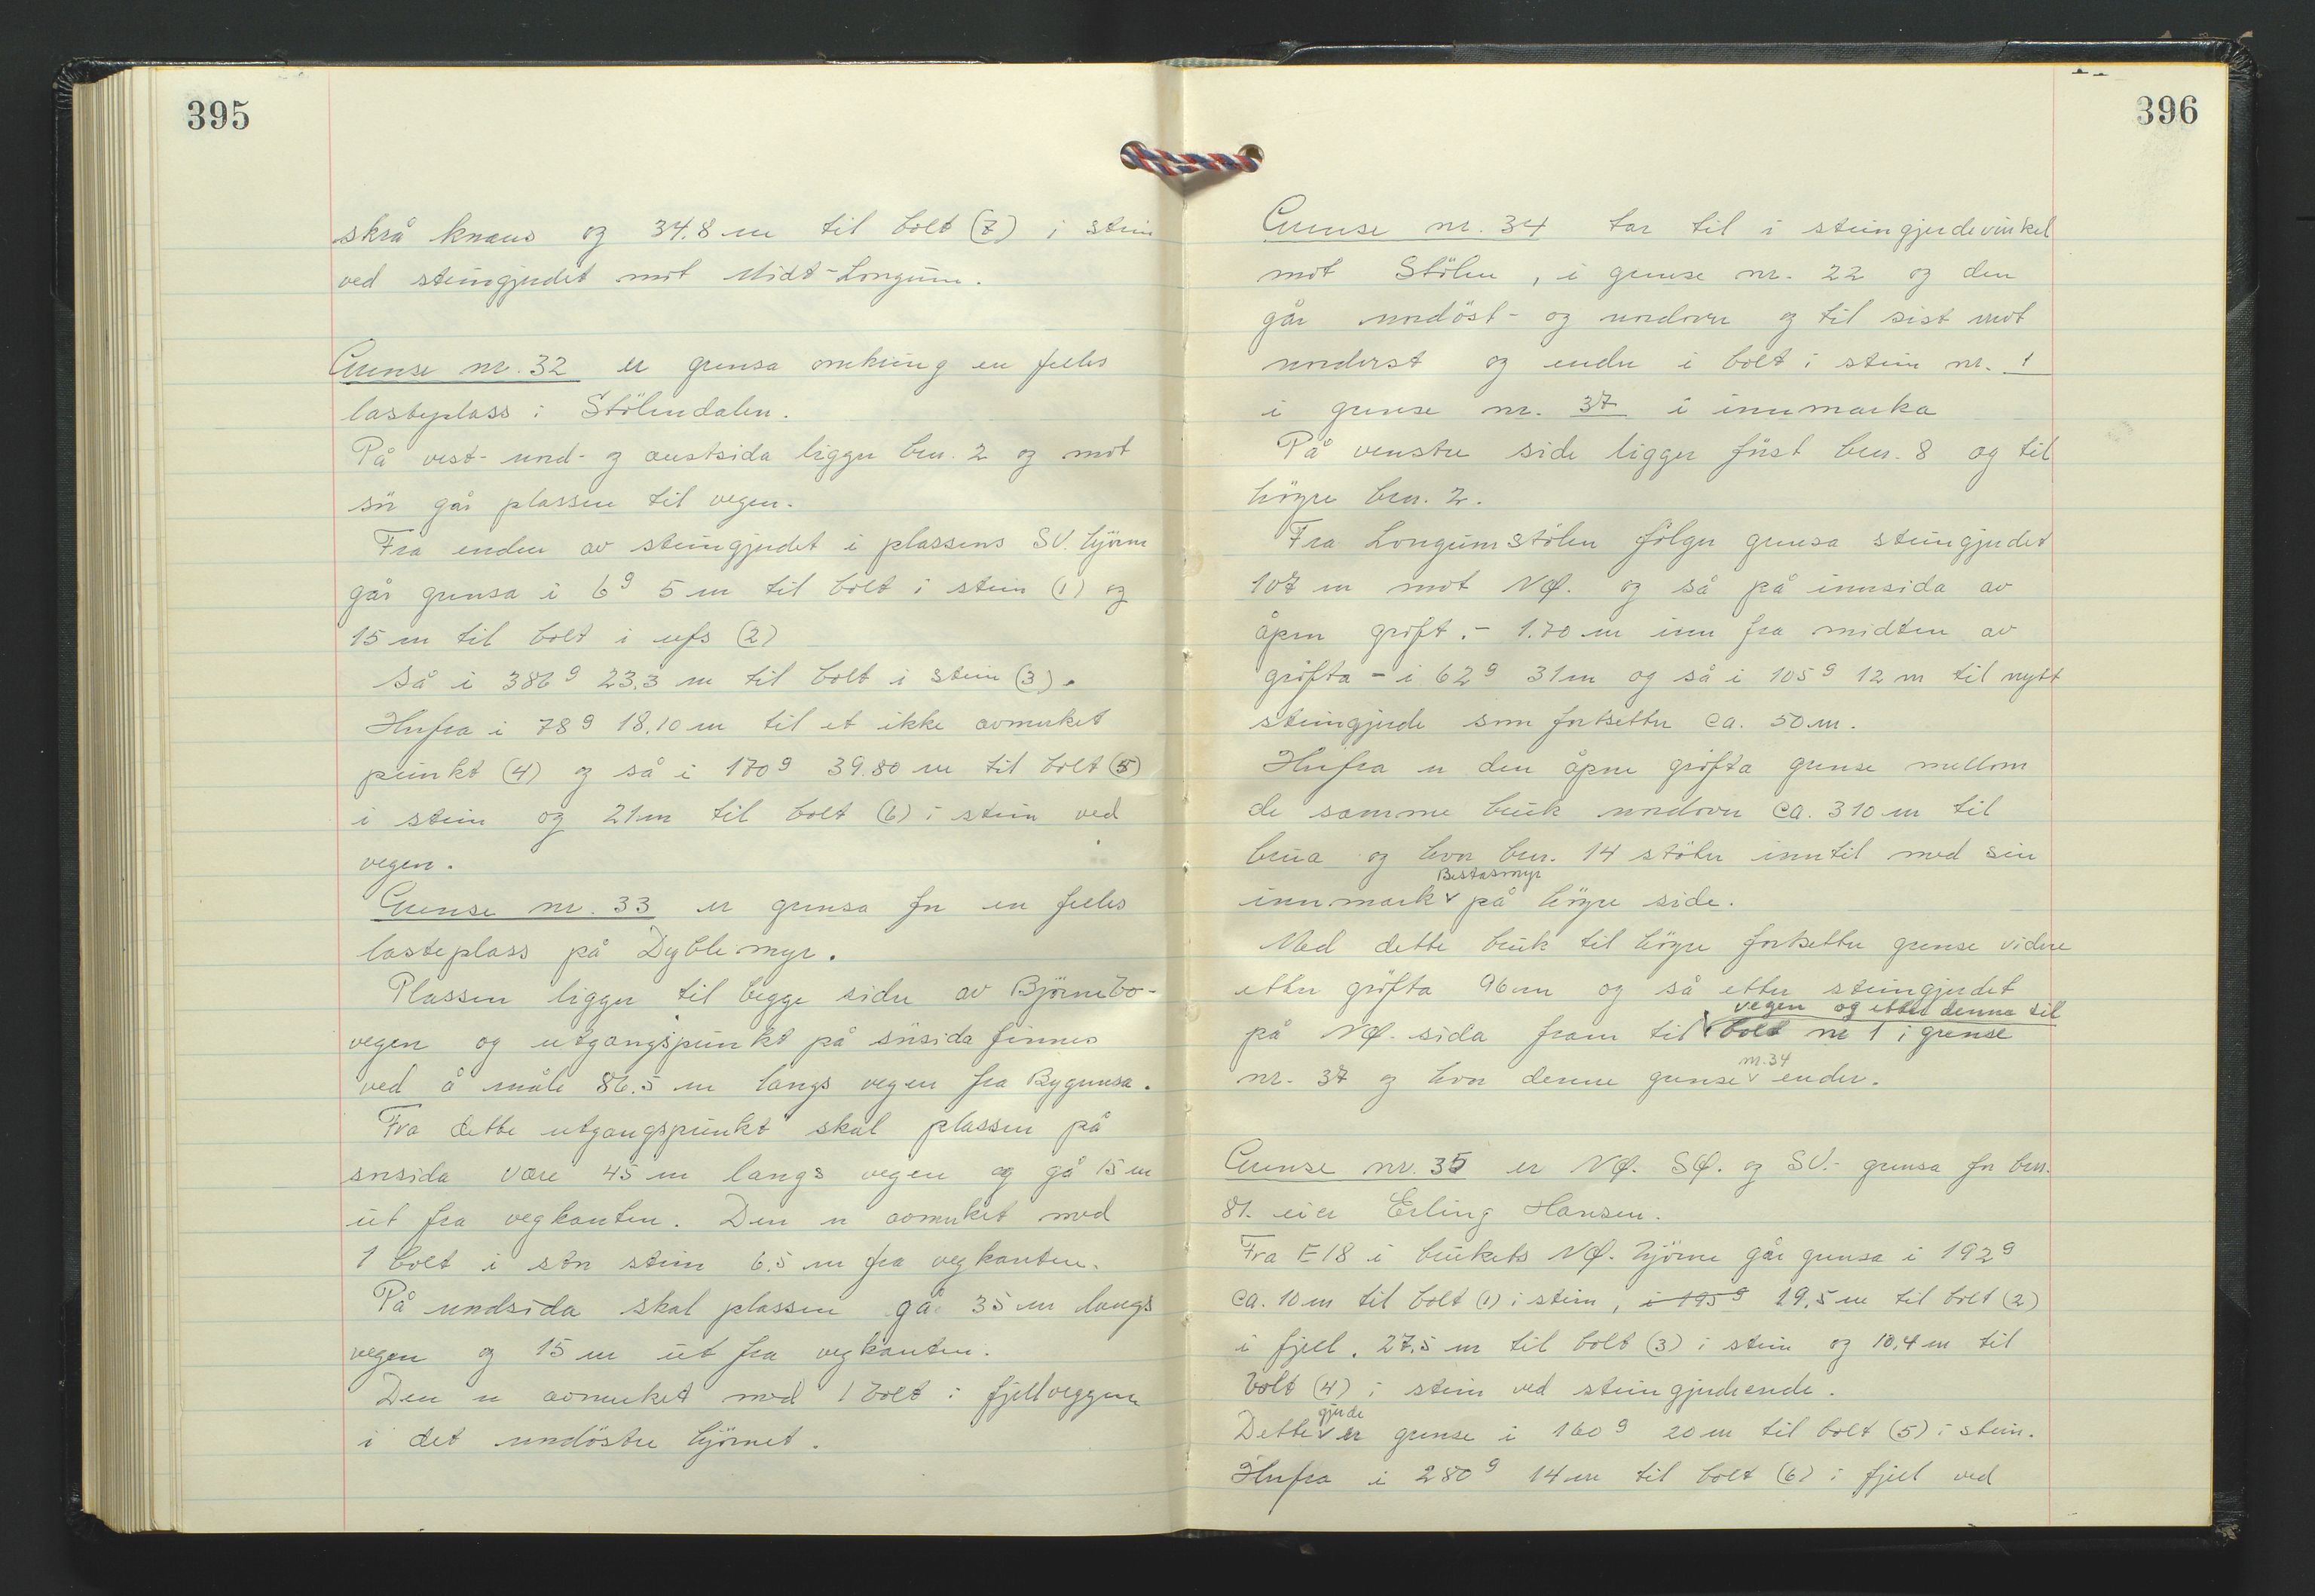 395
skrå knaus og 34.8 m til bolt (7) i stein
ved steingjerdet mot Midt-Longum.
Grense nr. 32 er grensa omkring en felles
lasteplass i Stölendalen.
På vest- nord- og austsida ligger bnr. 2 og mot
sör går plassen til vegen.
Fra enden av steingjerdet i plassens SV. hjörne
går grensa i 6g 5 m til bolt i stein (1) og
15 m til bolt i ufs (2)
Så i 386g 23.3 m til bolt i stein (3).
Herfra i 78g 18.10 m til et ikke avmerket
punkt (4) og så i 170g 39.80 m til bolt (5)
i stein og 21 m til bolt (6) i stein ved
vegen.
Grense nr. 33 er grensa for en felles
lasteplass på Dyblemyr.
Plassen ligger til begge sider av Björnebo-
vegen og utgangspunkt på sörsida finnes
ved å måle 86.5 m langs vegen fra Bygrensa.
Fra dette utgangspunkt skal plassen på
sörsida være 45 m langs vegen og gå 15 m
ut fra vegkanten. Den er avmerket med
1 bolt i stor stein 6.5 m fra vegkanten.
På nordsida skal plassen gå 35 m langs
vegen og 15 m ut fra vegkanten.
Den er avmerket med 1 bolt i fjellveggen
i det nordöstre hjörnet.
396
Grense nr. 34 tar til i steingjerdevinkel
mot Stölen, i grense nr. 22 og den
går nordöst- og nordover og til sist mot
nordvest og ender i bolt i stein nr. 1
i grense nr. 37 i innmarka
På venstre side ligger först bnr. 8 og til
högre bnr. 2.
Fra Longumstölen fölger grensa steingjerdet
107 m mot NØ. og så på innsida av
åpen gröft. - 1.70 m inn fra midten av
gröfta - i 62g 31 m og så i 105g 12 m til nytt
steingjerde som fortsetter ca. 50 m.
Herfra er den åpne gröfta grense mellom
de samme bruk nordover ca. 310 m til
brua og hvor bnr. 14 stöter inntil med sin
Bestasmyr
innmark v på högre side.
Med dette bruk til högre fortsetter grense videre
etter gröfta 96 m og så etter steingjerdet
vegen og etter denne til
på NØ. sida fram til v bolt nr 1 i grense
nr. 34
nr. 37 og hvor denne grense v ender.
Grense nr. 35 er NØ. SØ. og SV.- grensa for bnr.
81. eier Erling Hansen.
Fra E18 i brukets NØ. hjörne går grensa i 192g
ca. 10 m til bolt (1) i stein, i 195g 19.5 m til bolt (2)
i fjell. 27.5 m til bolt (3) i stein og 10.4 m til
bolt (4) i stein ved steingjerdeende.
gjerde
Dette v er grense i 160g 20 m til bolt (5) i stein.
Herfra i 280g 14 m til bolt (6) i fjell ved